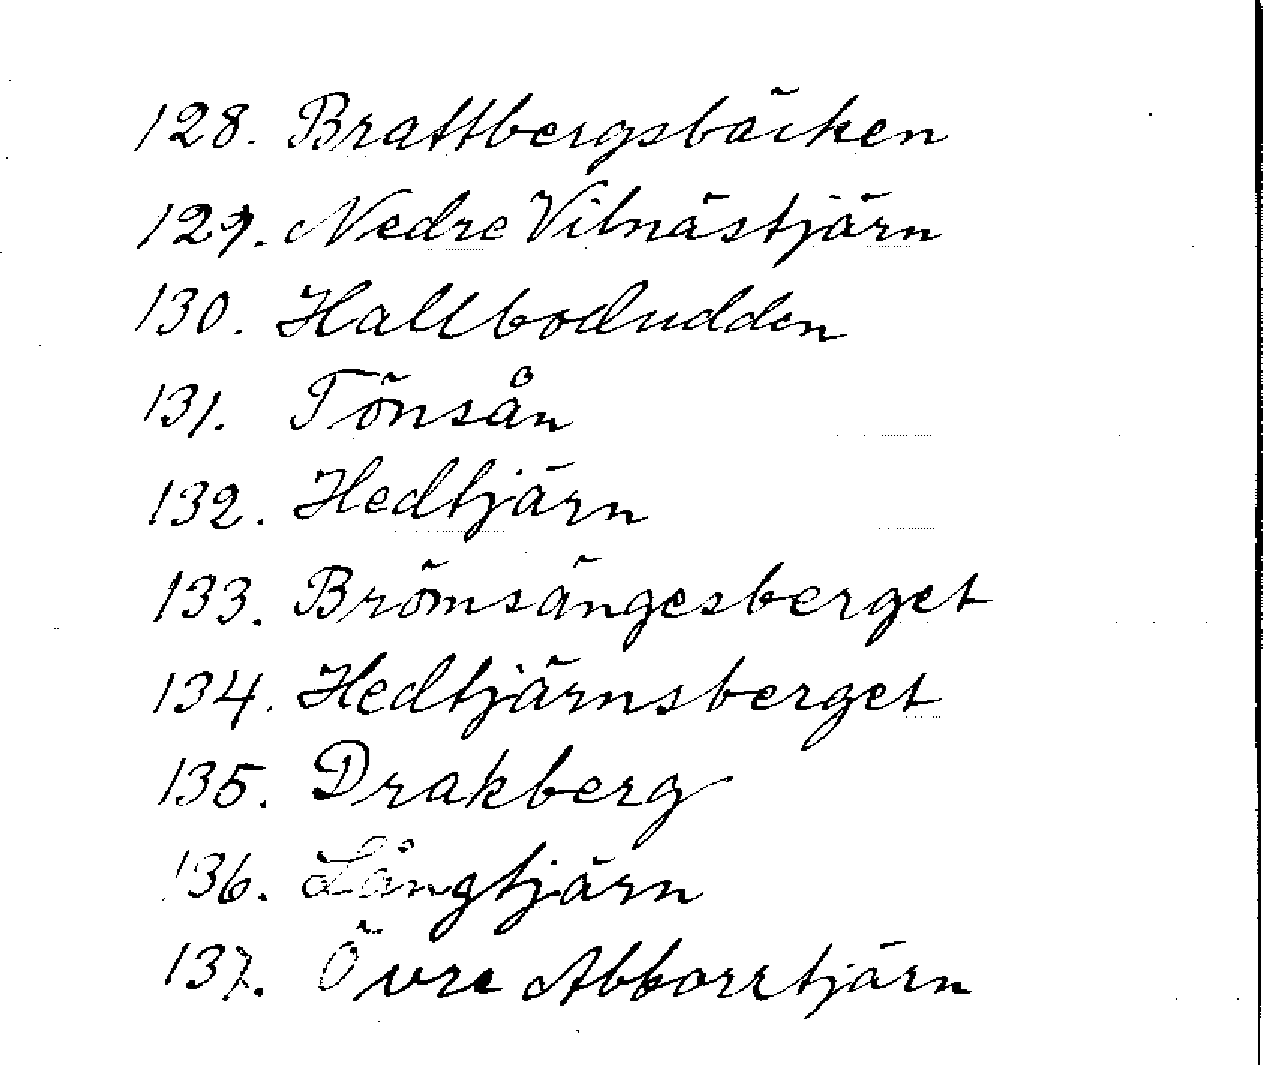 128. Brattbergsbäcken
129. Nedre Vilnästjärn
130. Hallbodudden
131. Tönsån
132. Hedtjärn
133. Brömsängesberget
134. Hedtjärnsberget
135. Drakberg
136. Långtjärn
137. Övre Abborrtjärn